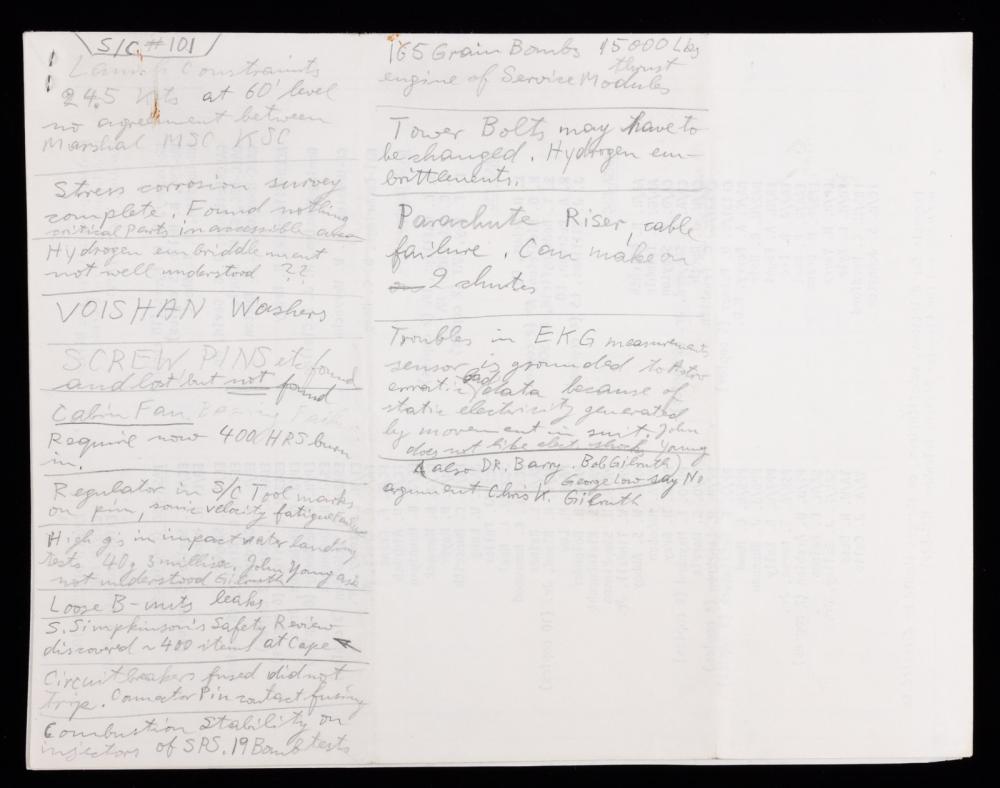 S/C #101
Launch Constraints
24.5 Kts at 60' level
no agreement between
Marshal MSC KSC
Stress corrosion survey
complete. Found nothing
critical Parts in accessible area
Hydrogen embriddlement
not well understood ??
VOISHAN Washers
SCREW PINS etc found
and lost but not found
Cabin Fan Bearing Fail
Require now 400 HRS burn
in.
Regulator in S/C Tool marks
on pin, sonic velocity fatigue
High g's in impact water landing
tests 40g 3 millisec. John Young ask
not understood Gilruth
Loose B-nuts leaks
S. Simpkinson's Safety Review
discovered ~ 400 items at Cape
Circuit breakers fused did not
trip. Connector Pin contact fusing
Combustion Stability on
injectors of SPS. 19 Bomb tests
165 Grain Bombs 15000 Lbs
thrust
engine of Service Modules
Tower Bolts may have to
be changed. Hydrogen em-
brittlements.
Parachute Riser, cable
failure. Can make on
2 chutes
Troubles in EKG measurements
sensor is grounded to Astro
erratic bad data because of
static electricity generated
by movement in suit. John
does not like elect shock, Young
(also DR. Barry. Bob Gilruth)
George Low say No
argument Chris K. Gilruth